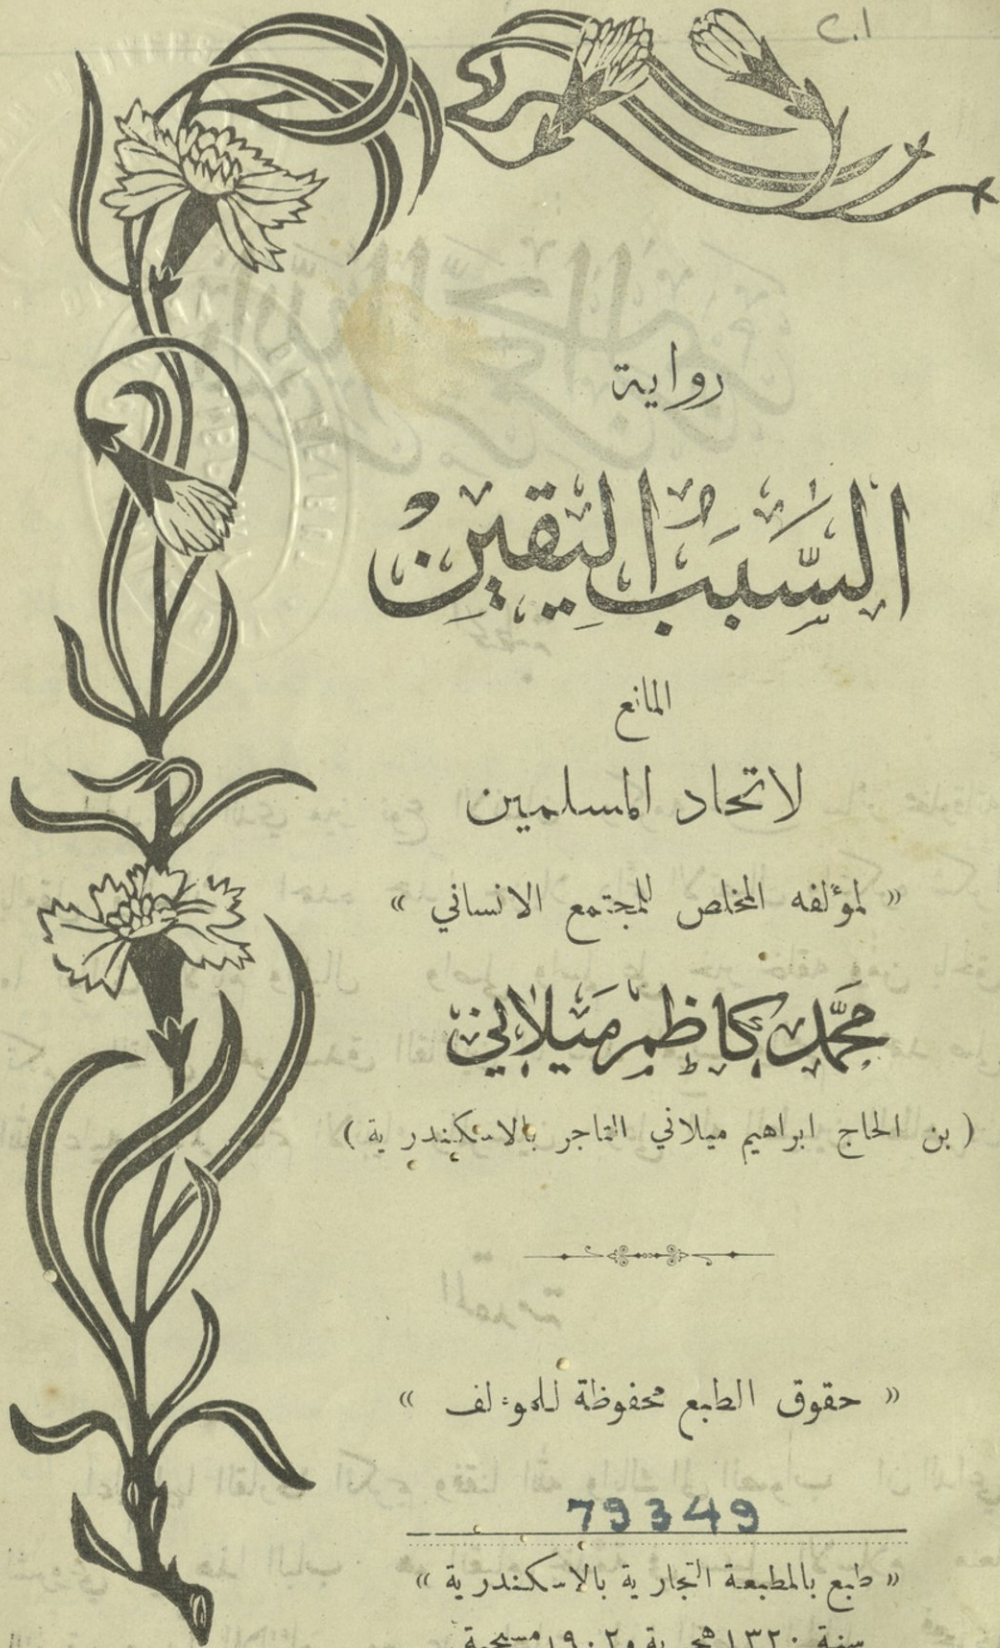 ا.د
رواية
السَّبَبُ اليَقِينْ
المانع
لاتحاد المسلمين
« لمؤلفه المخلص للمجتمع الانساني »
محمَّد كاظم مَيلاني
( بن الحاج ابراهيم ميلاني التاجر بالاسكندرية )
« حقوق الطبع محفوظة للمؤلف »
79349
« طبع بالمطبعة التجارية بالاسكندرية »
سنة ١٣٢٠ هجرية و ١٩٠٢ مسيحية